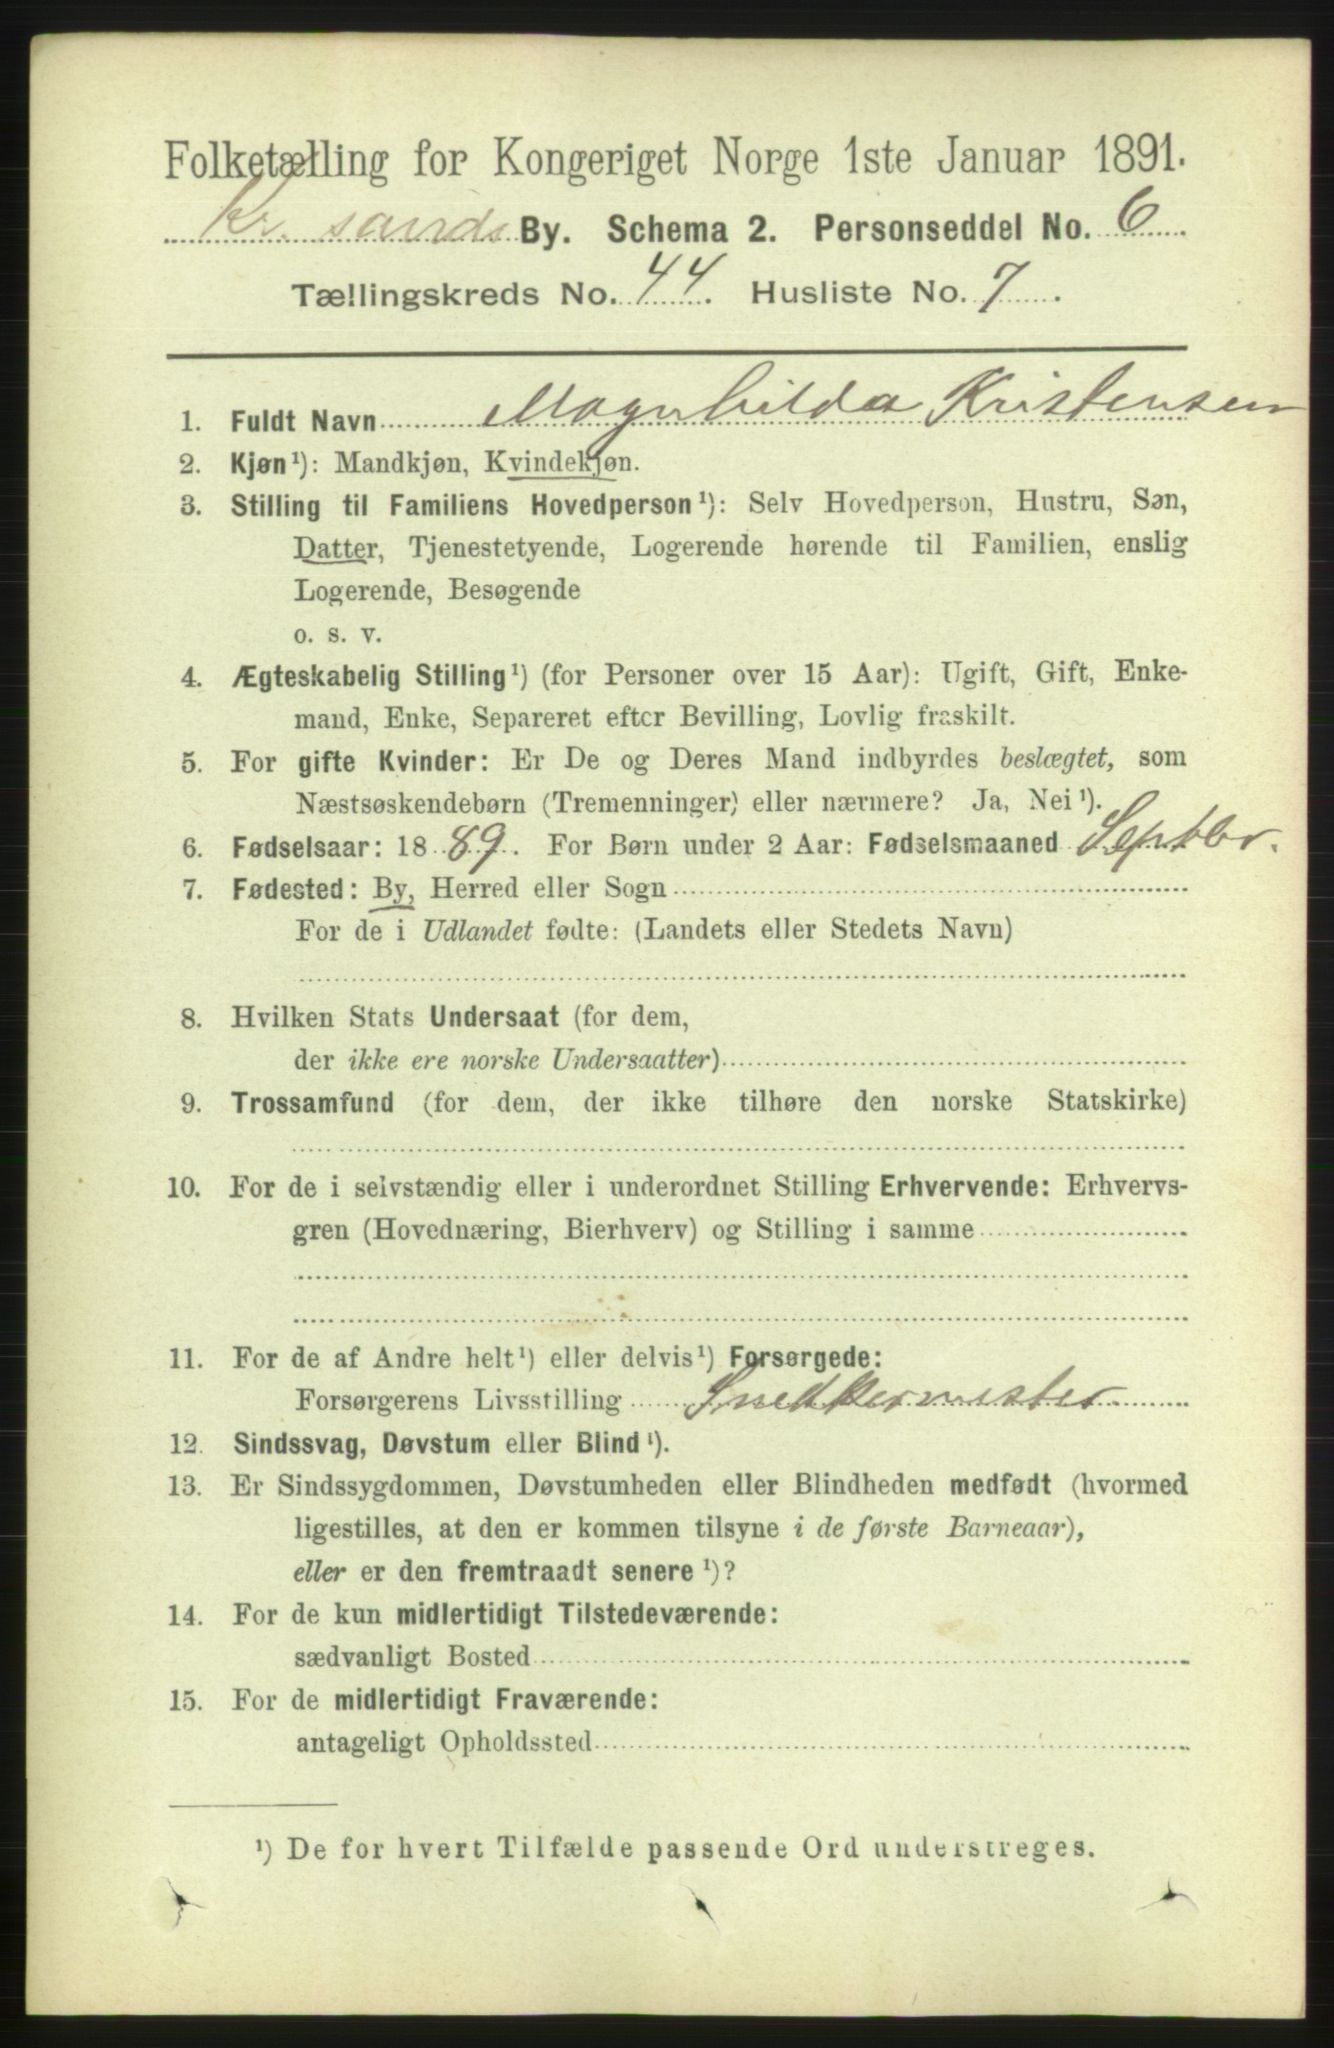 Folketælling for Kongeriget Norge 1ste Januar 1891.
Kr. sands By. Schema 2. Personseddel No. 6
Tællingskreds No. 44. Husliste No. 7
1. Fuldt Navn Magnhilda Kristensen
2. Kjøn¹): Mandkjøn, Kvindekjøn.
3. Stilling til Familiens Hovedperson¹): Selv Hovedperson, Hustru, Søn,
Datter, Tjenestetyende, Logerende hørende til Familien, enslig
Logerende, Besøgende
o. s. v.
4. Ægteskabelig Stilling¹) (for Personer over 15 Aar): Ugift, Gift, Enke-
mand, Enke, Separeret efter Bevilling, Lovlig fraskilt.
5. For gifte Kvinder: Er De og Deres Mand indbyrdes beslægtet, som
Næstsøskendebørn (Tremenninger) eller nærmere? Ja, Nei¹).
6. Fødselsaar: 1889. For Børn under 2 Aar: Fødselsmaaned Septbr.
7. Fødested: By, Herred eller Sogn
For de i Udlandet fødte: (Landets eller Stedets Navn)
8. Hvilken Stats Undersaat (for dem,
der ikke ere norske Undersaatter)
9. Trossamfund (for dem, der ikke tilhøre den norske Statskirke)
10. For de i selvstændig eller i underordnet Stilling Erhvervende: Erhvervs-
gren (Hovednæring, Bierhverv) og Stilling i samme
11. For de af Andre helt¹) eller delvis¹) Forsørgede:
Forsørgerens Livsstilling Snekkermester
12. Sindssvag, Døvstum eller Blind¹).
13. Er Sindssygdommen, Døvstumheden eller Blindheden medfødt (hvormed
ligestilles, at den er kommen tilsyne i de første Barneaar),
eller er den fremtraadt senere¹)?
14. For de kun midlertidigt Tilstedeværende:
sædvanligt Bosted
15. For de midlertidigt Fraværende:
antageligt Opholdssted
¹) De for hvert Tilfælde passende Ord understreges.